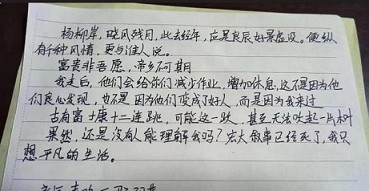 杨柳岸,晓风残月,此去经年,应是良辰好景虚设。便纵
有千种风情,更与谁人说。
富贵非吾愿,帝乡不可期
我走后,他们会给你们减少作业,增加休息,这不是因为他
们良心发现,也不是因为他们变成了好人,而是因为我来过
古有富士康十二连跳,可能这一跃,甚至无法吹起一片树叶
果然,还是没有人能理解我吗?宏大叙事已经死了,我只
想平凡的生活。